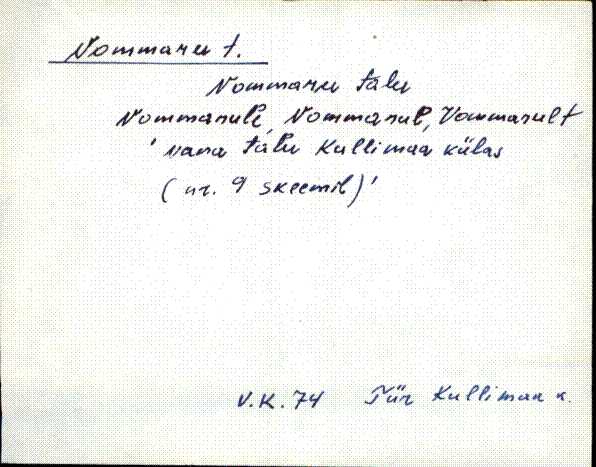 Nommaru t.
Nommaru talu
Nommarule, Nommarul, Nommarult
' vana talu Kullimaa külas
(nr. 9 skeemil)'
V.K.74 Tür Kullimaa k.